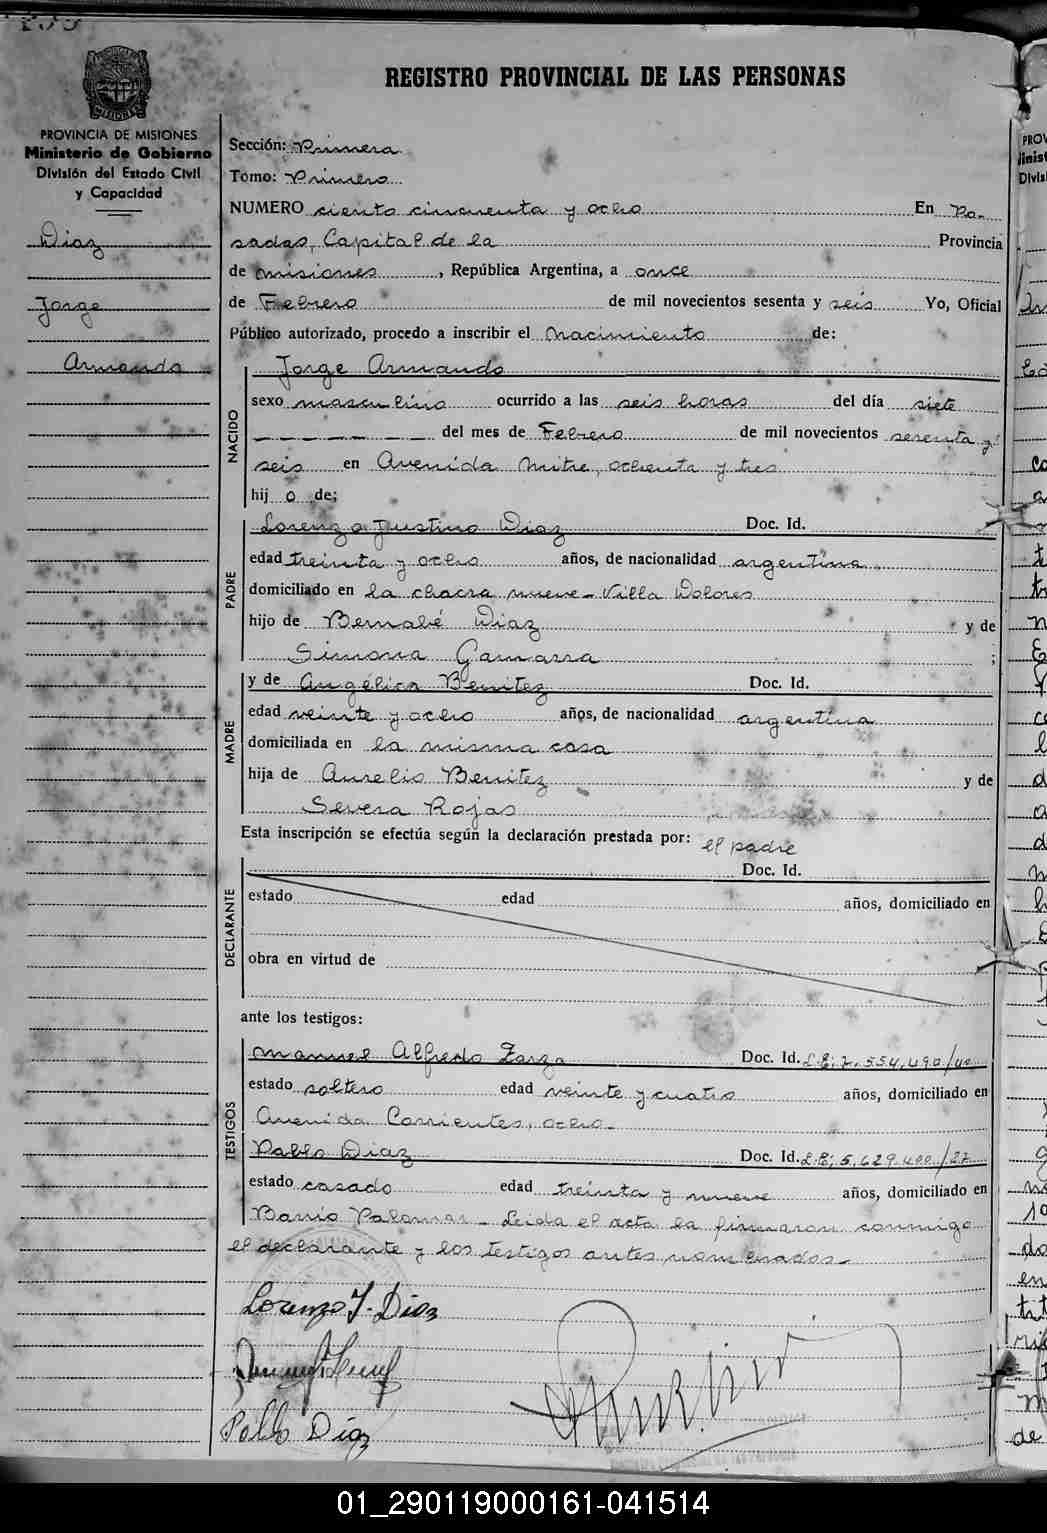 REGISTRO PROVINCIAL DE LAS PERSONAS
PROVINCIA DE MISIONES
Ministerio de Gobierno
División del Estado Civil
y Capacidad
Diaz
Jorge
Armando
Sección: Primera
Tomo: Primero
NUMERO ciento cincuenta y ocho En Po-
sadas, Capital de la Provincia
de misiones, República Argentina, a once
de Febrero de mil novecientos sesenta y seis Yo, Oficial
Público autorizado, procedo a inscribir el nacimiento de:
NACIDO
Jorge Armando
sexo masculino ocurrido a las seis horas del día siete
del mes de Febrero de mil novecientos sesenta y
seis en Avenida mitre, ochenta y tres
hij o de:
PADRE
Lorenzo Justino Diaz Doc. Id.
edad treinta y ocho años, de nacionalidad argentina
domiciliado en la chacra nueve - Villa Dolores
hijo de Bernabé Diaz y de
Simona Gamarra ;
MADRE
y de Angélica Benitez Doc. Id.
edad veinte y ocho años, de nacionalidad argentina
domiciliada en la misma casa
hija de Aurelio Benitez y de
Severa Rojas
Esta inscripción se efectúa según la declaración prestada por: el padre
DECLARANTE
Doc. Id.
estado edad años, domiciliado en
obra en virtud de
ante los testigos:
TESTIGOS
manuel Alfredo Zarza Doc. Id. L.E: 7.554.490/40
estado soltero edad veinte y cuatro años, domiciliado en
Avenida Corrientes, ocho-
Pablo Diaz Doc. Id. L.E: 5.629.400/27
estado casado edad treinta y nueve años, domiciliado en
Barrio Palomar - Leida el acta la firmaron conmigo
el declarante y los testigos antes nombrados-
Lorenzo J. Diaz
Pablo Diaz
01_290119000161-041514